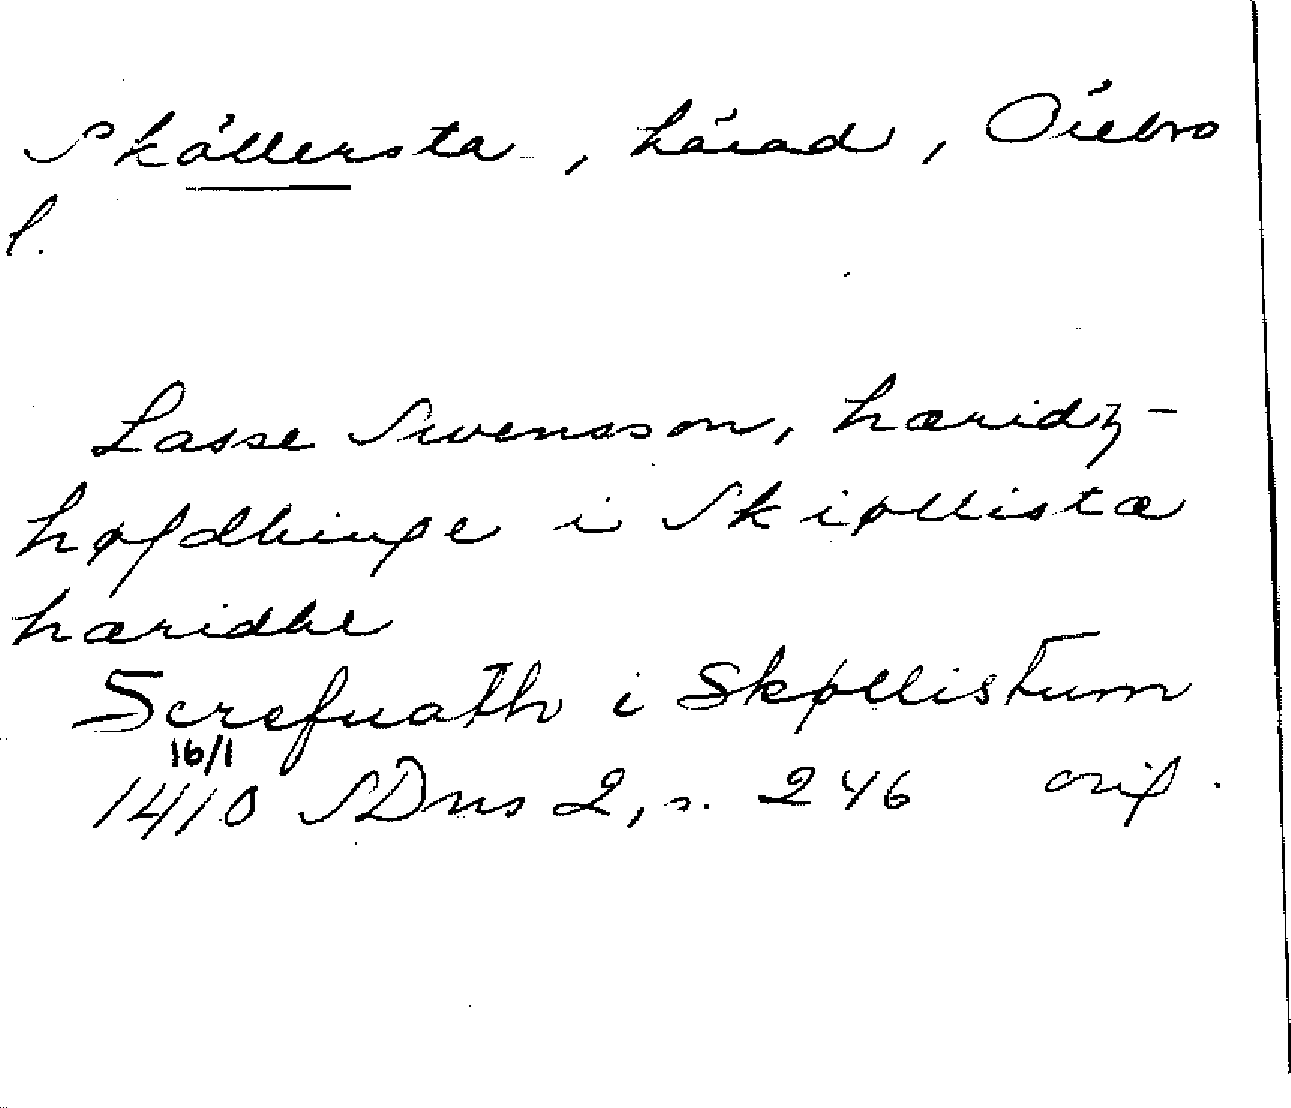 Sköllersta, härad, Örebro
l.
Lasse Swensson, hæridz-
høfdhinge i Skiøllista
hæridhe
Screfuath i Skøllistum
16/1
1410 SDns 2, s. 246 orig.